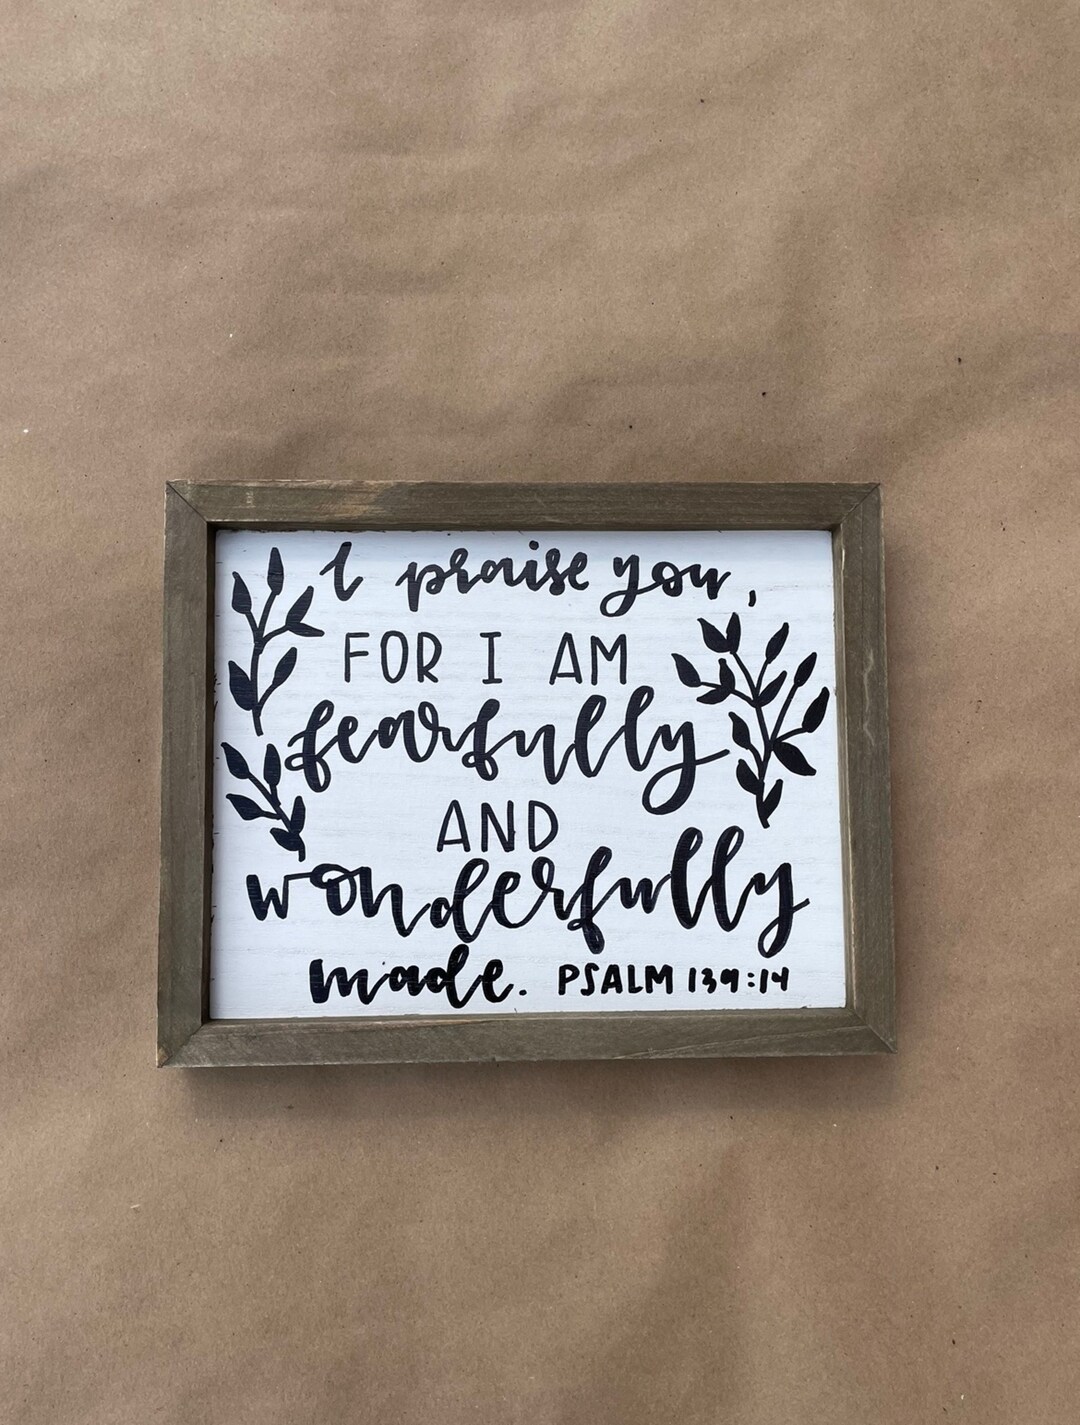 I praise you,
FOR I AM
fearfully
AND
wonderfully
made. PSALM 139:14